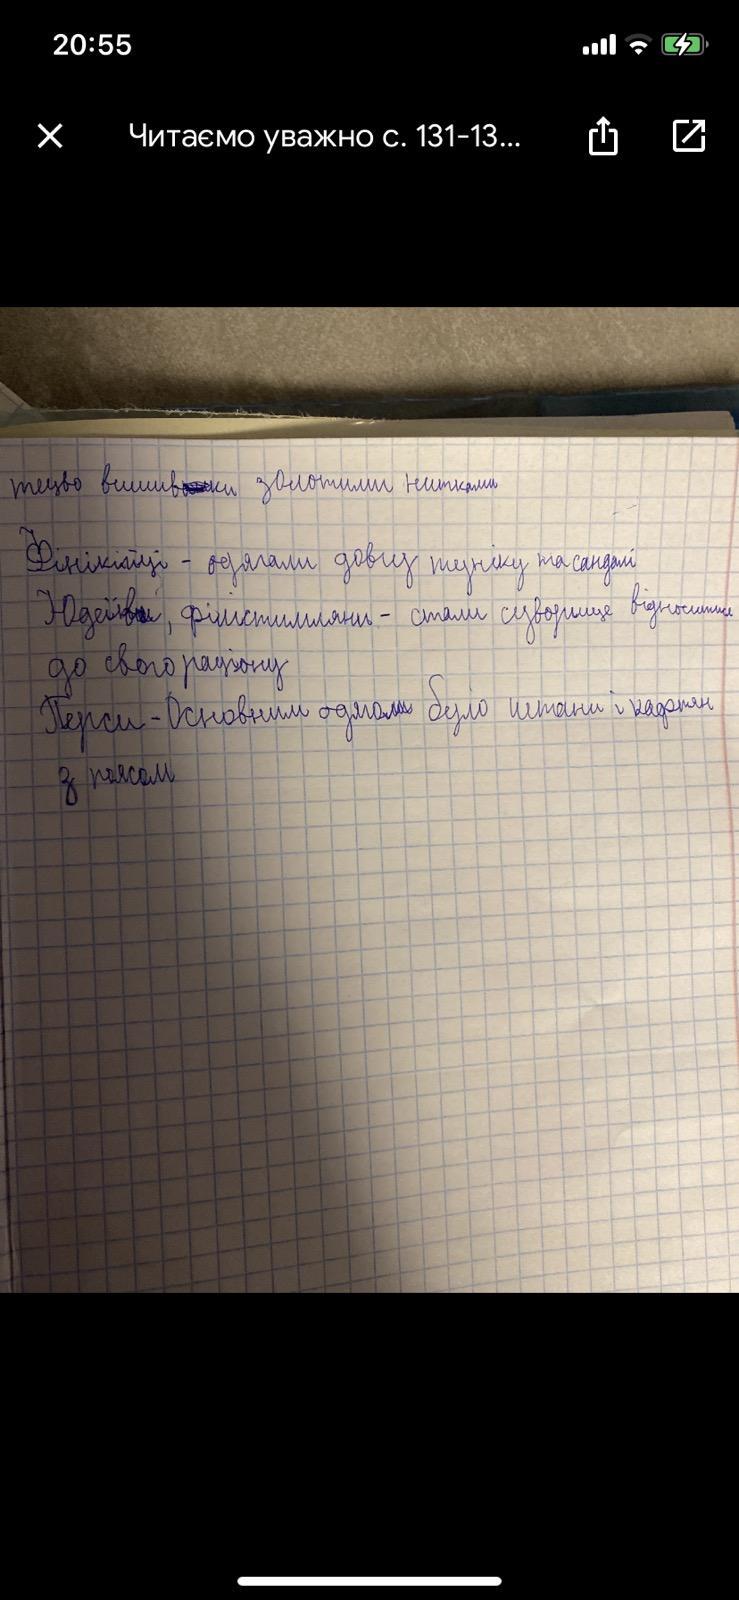 20:55
Читаємо уважно с. 131-13...
тецво вишивки золотими нитками
Фінікійці - одягали довгу туніку та сандалі
Юдеї, філістимляни - стали суворище відноситися
до свого раціону
Перси - Основним одягом було штани і кафтян
з поясом